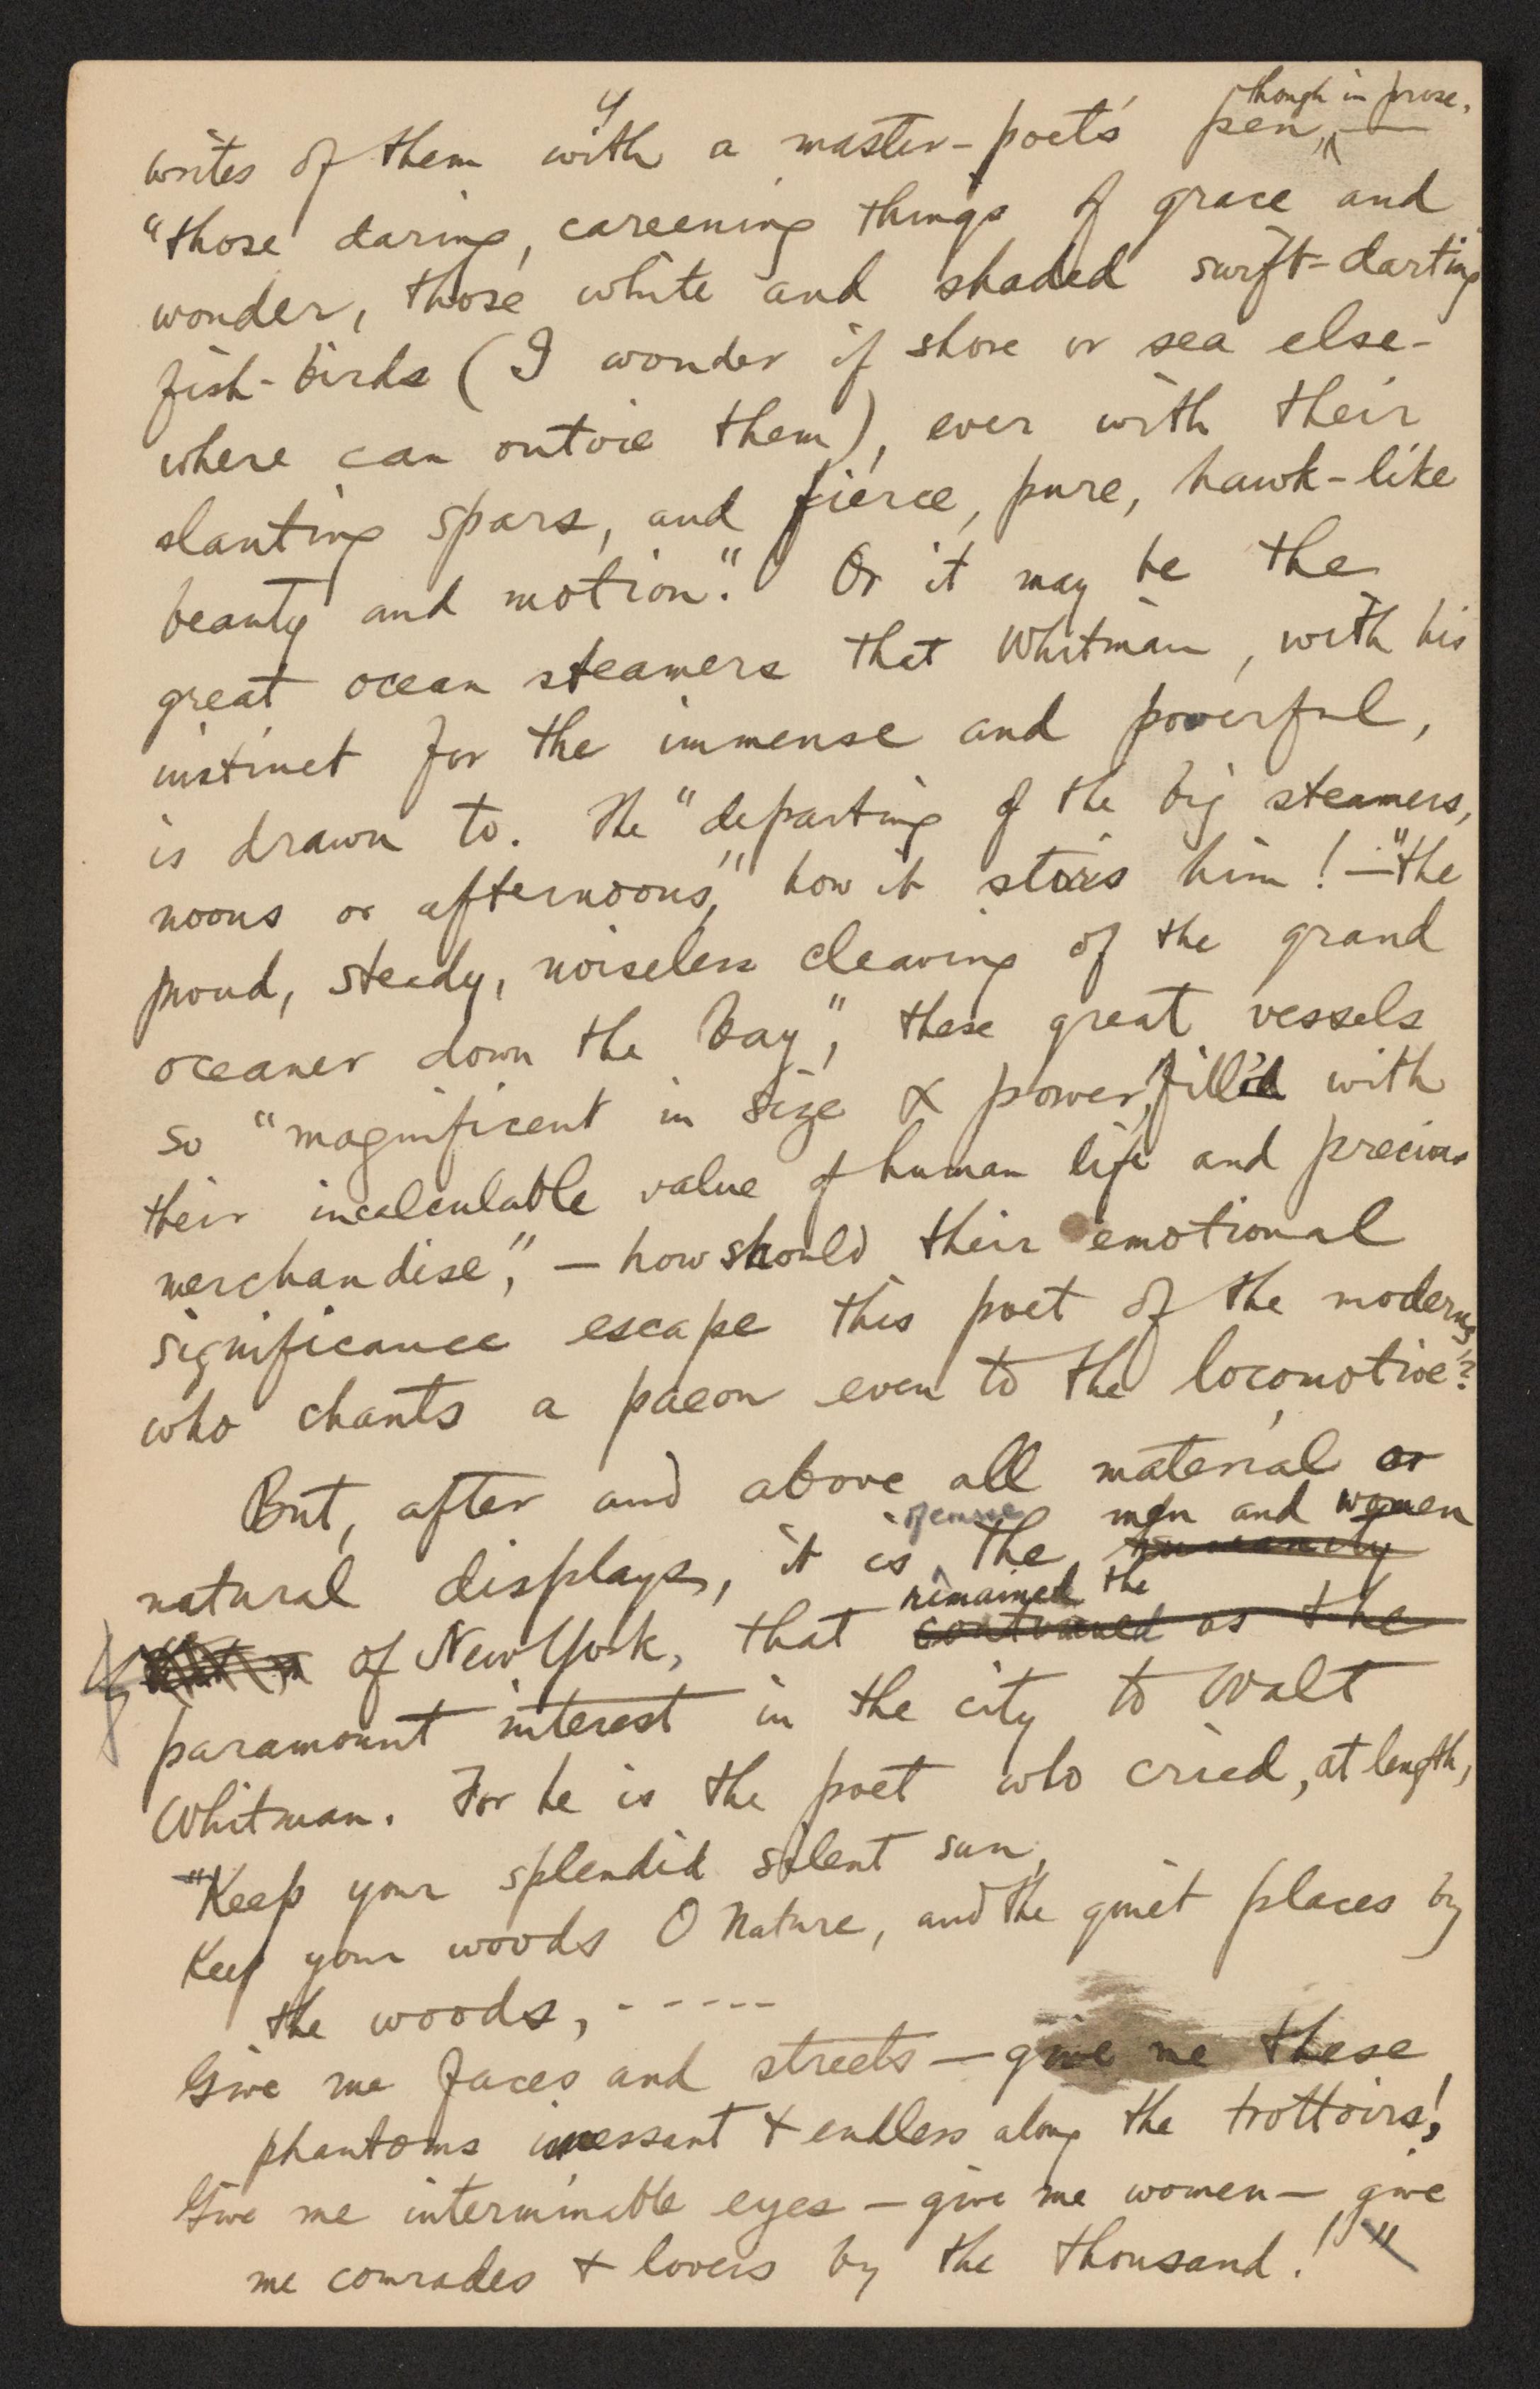 4
though in prose,
writes of them with a master-poet's pen, —
"those daring, careening things of grace and
wonder, those white and shaded swift-darting
fish-birds (I wonder if shore or sea else-
where can outvie them), ever with their
slanting spars, and fierce, pure, hawk-like
beauty and motion." Or it may be the
great ocean steamers that Whitman, with his
instinct for the immense and powerful,
is drawn to. The "departing of the big steamers,
noons or afternoons," how it stirs him! — "the
proud, steady, noiseless cleaving of the grand
oceaner down the bay", these great vessels
so "magnificent in size & power, fill'd with
their incalculable value of human life and precious
merchandise", — how should their emotional
significance escape this poet of the modern,
who chants a paeon even to the locomotive?
But, after and above all material or
of course men and women
natural displays, it is the humanity
remained the
of New York, that continued as the
paramount interest in the city to Walt
Whitman. For he is the poet who cried, at length,
"Keep your splendid silent sun,
Keep your woods O Nature, and the quiet places by
the woods, - - - - -
Give me faces and streets — give me these
phantoms incessant & endless along the trottoirs!
Give me interminable eyes — give me women — give
me comrades & lovers by the thousand! "